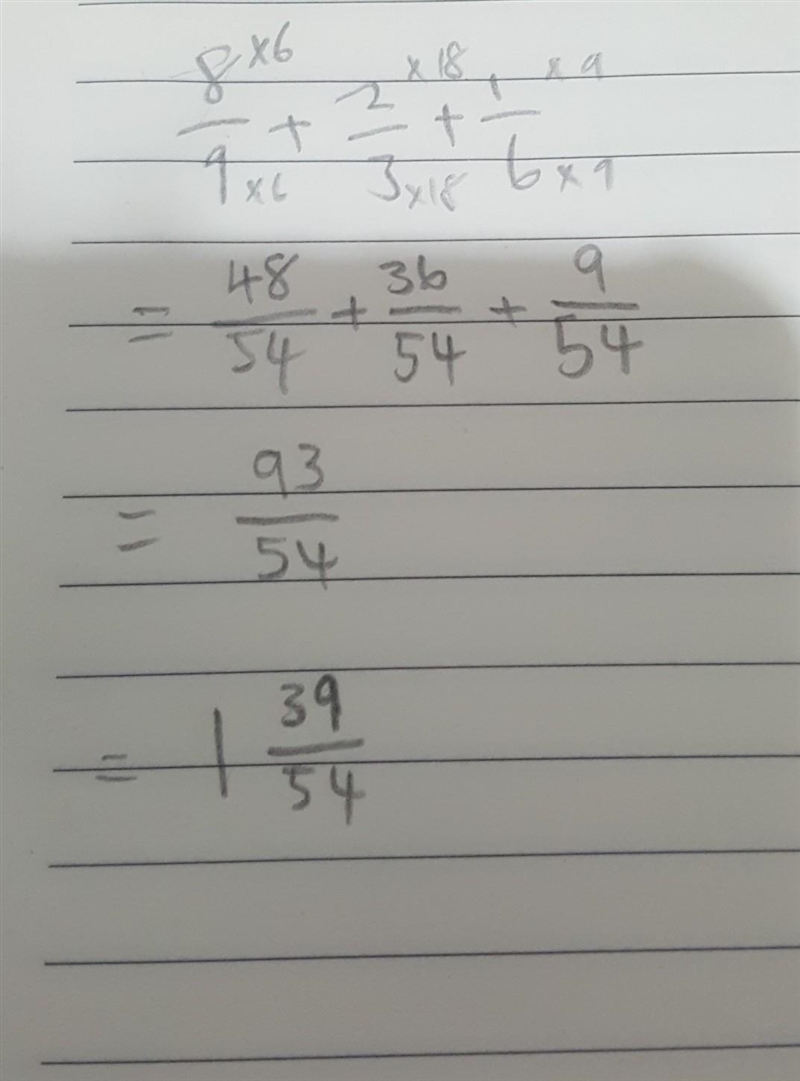 8×6/9×6 + 2×18/3×18 + 1×9/6×9
= 48/54 + 36/54 + 9/54
= 93/54
= 1 39/54